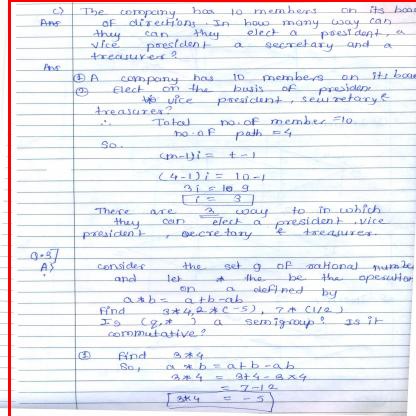 c) The company has 10 members on its boar
Ans of directions. In how many way can
they can they elect a president, a
vice president a secretary and a
treasurer?
Ans
① A company has 10 members on its boar
② Elect on the basis of presiden
vice president, secretary &
treasurer?
∴ Total no. of member = 10
no. of path = 4
So.
(m-1)i = t-1
(4-1)i = 10-1
3i = 9
i = 3
There are 3 way to in which
they can elect a president, vice
president, secretary & treasurer.
Q.3]
A) consider the set Q of rational number
and let * the be the operation
on a defined by
a*b = a+b-ab
Find 3*4, 2*(-5), 7*(1/2)
Is (Q,*) a semigroup? Is it
commutative?
① Find 3*4
So, a*b = a+b-ab
3*4 = 3+4-3x4
= 7-12
3*4 = -5